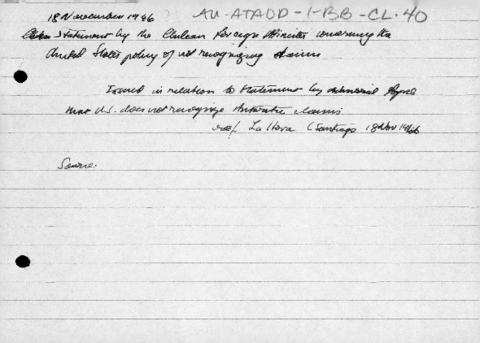 18 November 1946 AU-ATADD-1-BB-CL-40
Statement by the Chilean Foreign Minister concerning the
United States policy of not recognizing claims
Issued in relation to statement by
that U.S. does not recognize Antarctic claims
ref. La Hora (Santiago 18 Nov 1946
Source: